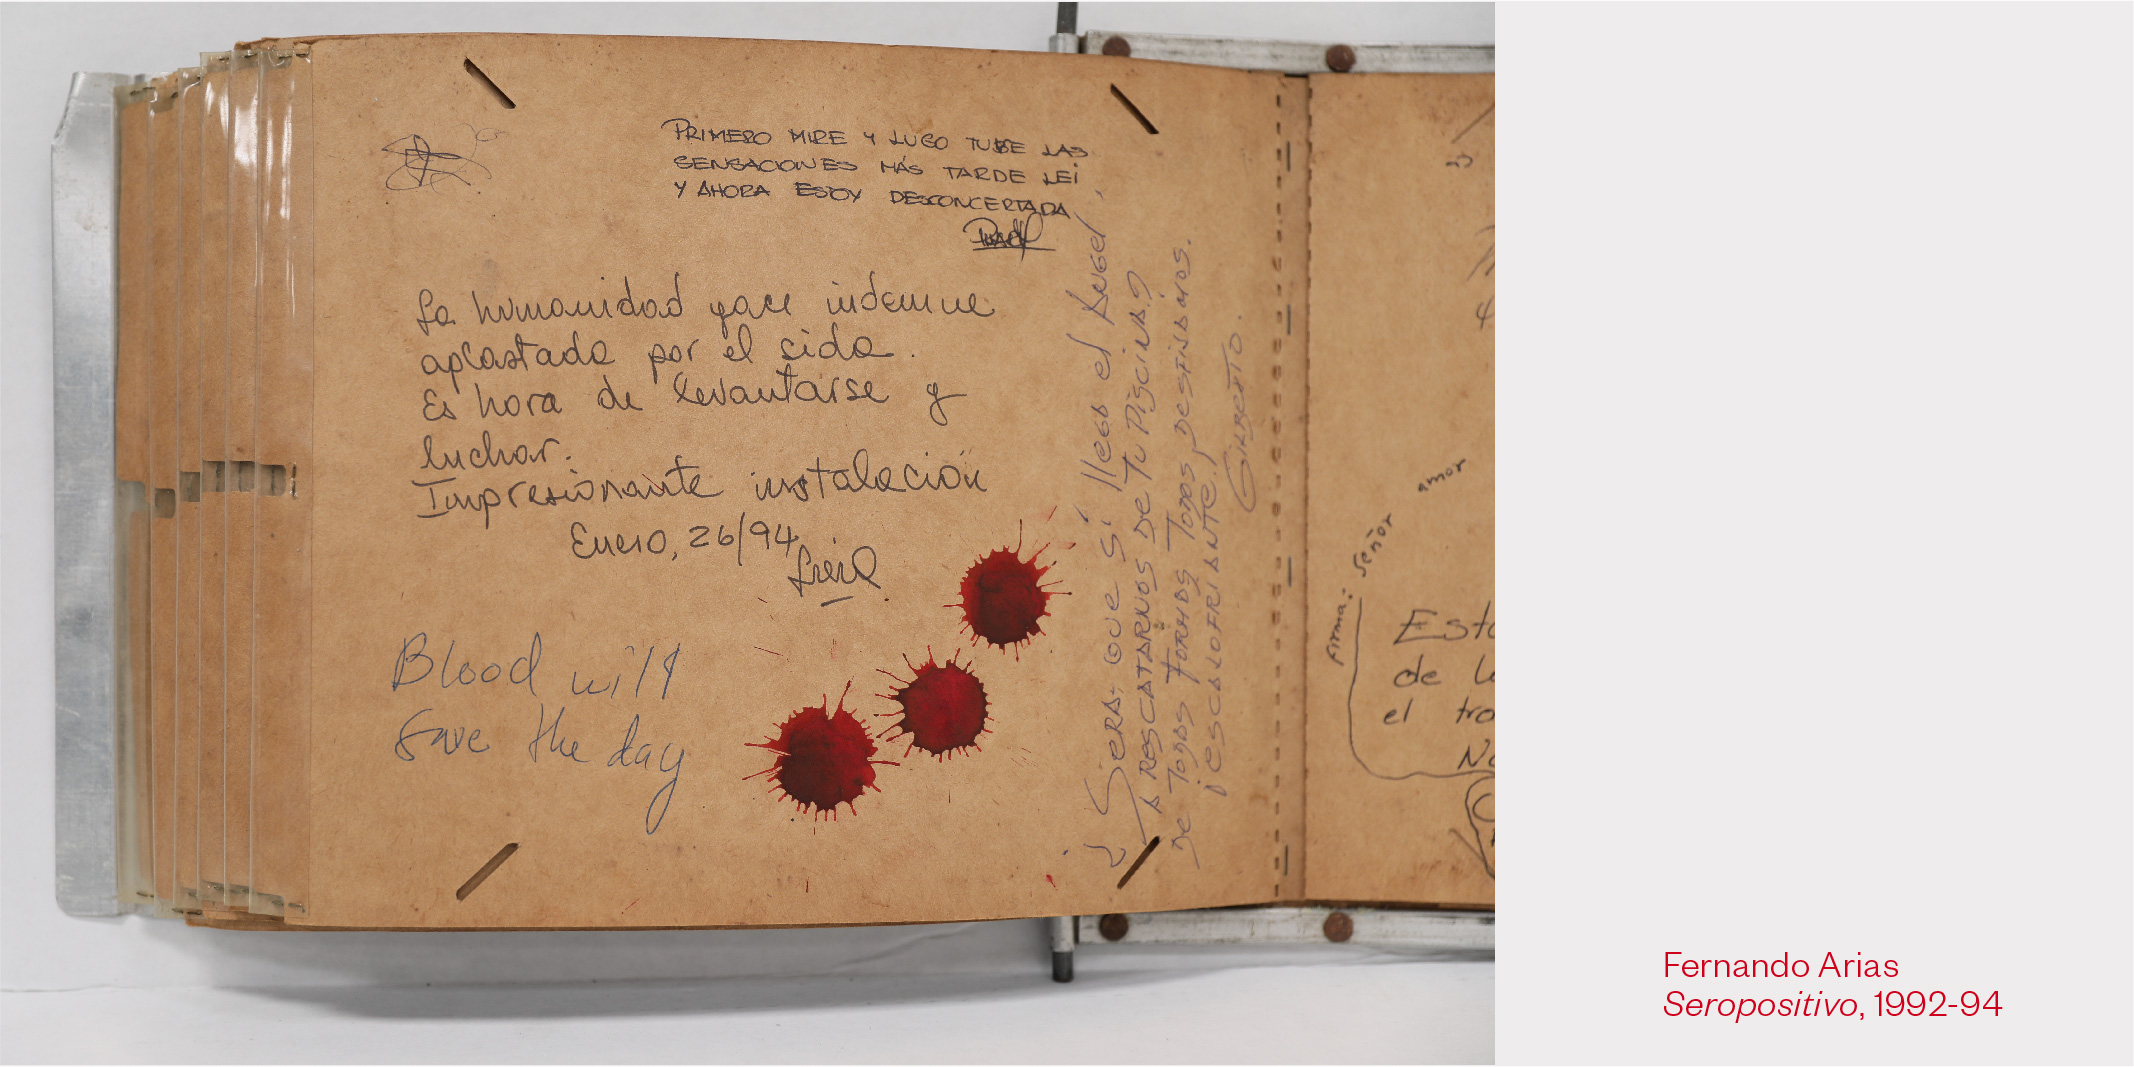 PRIMERO MIRE Y LUGO TUBE LAS
SENSACIONES MÁS TARDE LEÍ
Y AHORA ESTOY DESCONCERTADA
La humanidad yace indemne
aplastada por el sida.
Es hora de levantarse y
luchar.
Impresionante instalación
Enero, 26/94
Blood will
save the day
¿SERA, QUE SÍ llegó el Angel,
A RESCATARNOS DE TU PISCINA?
DE TODAS FORMAS TODOS DESFILAMOS.
¡ESCALOFRIANTE!
GILBERTO.
amor
Señor
Firma:
Esta
de l
el tra
No
Fernando Arias
Seropositivo, 1992-94